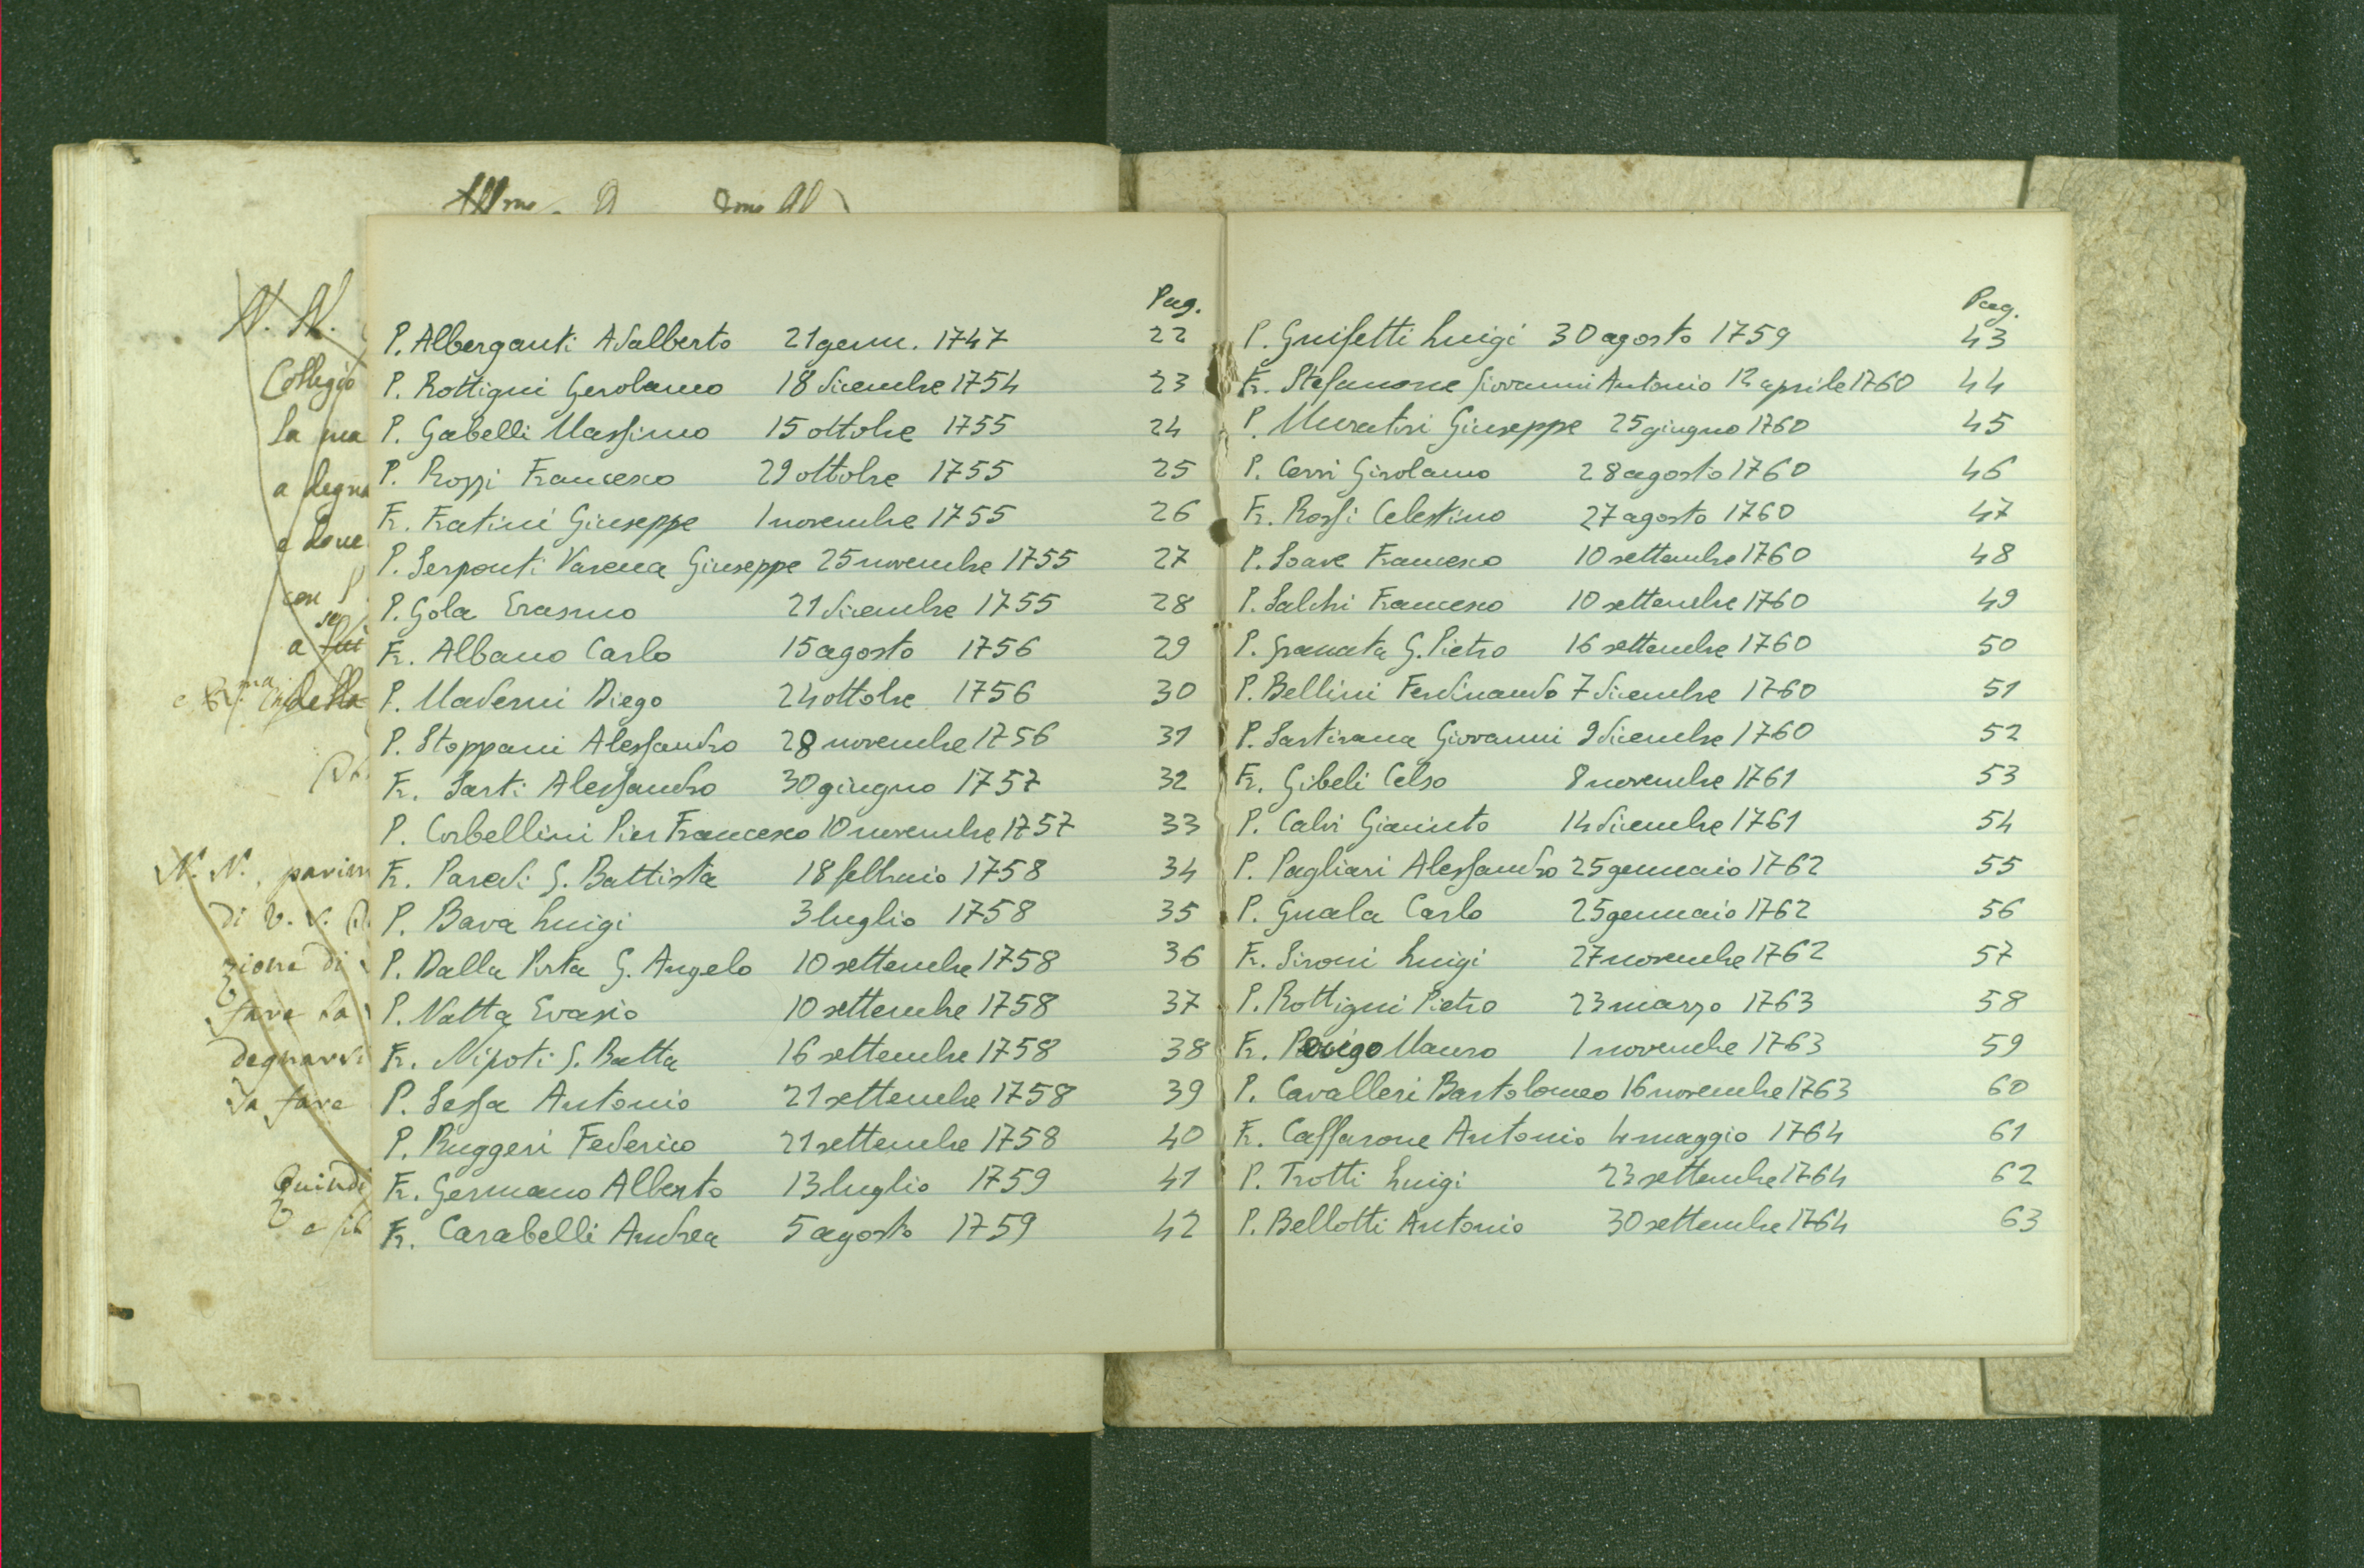 N. N.
Collegio
la ma
a degna
e dove
con
se
a lui
della
N. N., parim
di V. S.
zione di
fare la
degnarsi
da fare
Quindi
Pag.
P. Alberganti Adalberto 21 genn. 1747 22
P. Rottigni Gerolamo 18 dicembre 1754 23
P. Gabelli Massimo 15 ottobre 1755 24
P. Rozzi Francesco 29 ottobre 1755 25
Fr. Fratini Giuseppe 1 novembre 1755 26
P. Serponti Varena Giuseppe 25 novembre 1755 27
P. Gola Erasmo 21 dicembre 1755 28
Fr. Albano Carlo 15 agosto 1756 29
P. Maderni Diego 24 ottobre 1756 30
P. Stoppani Alessandro 28 novembre 1756 31
Fr. Sarti Alessandro 30 giugno 1757 32
P. Corbellini Pier Francesco 10 novembre 1757 33
Fr. Paredi G. Battista 18 febbraio 1758 34
P. Bava Luigi 3 luglio 1758 35
P. Dalla Porta G. Angelo 10 settembre 1758 36
P. Natta Evasio 10 settembre 1758 37
Fr. Nipoti G. Batta 16 settembre 1758 38
P. Sessa Antonio 21 settembre 1758 39
P. Ruggeri Federico 21 settembre 1758 40
Fr. Germano Alberto 13 luglio 1759 41
Fr. Carabelli Andrea 5 agosto 1759 42
Pag.
P. Grisetti Luigi 30 agosto 1759 43
Fr. Stefanone Giovanni Antonio 12 aprile 1760 44
P. Muratori Giuseppe 25 giugno 1760 45
P. Cerri Girolamo 28 agosto 1760 46
Fr. Rossi Celestino 27 agosto 1760 47
P. Soave Francesco 10 settembre 1760 48
P. Salchi Francesco 10 settembre 1760 49
P. Granata G. Pietro 16 settembre 1760 50
P. Bellini Ferdinando 7 dicembre 1760 51
P. Sartirana Giovanni 9 dicembre 1760 52
Fr. Gibeli Celso 8 novembre 1761 53
P. Calvi Giacinto 14 dicembre 1761 54
P. Pagliari Alessandro 25 gennaio 1762 55
P. Guala Carlo 25 gennaio 1762 56
Fr. Sironi Luigi 27 novembre 1762 57
P. Rottigni Pietro 23 marzo 1763 58
Fr. Rovigo Mauro 1 novembre 1763 59
P. Cavalleri Bartolomeo 16 novembre 1763 60
Fr. Caffarone Antonio 4 maggio 1764 61
P. Trotti Luigi 23 settembre 1764 62
P. Bellotti Antonio 30 settembre 1764 63